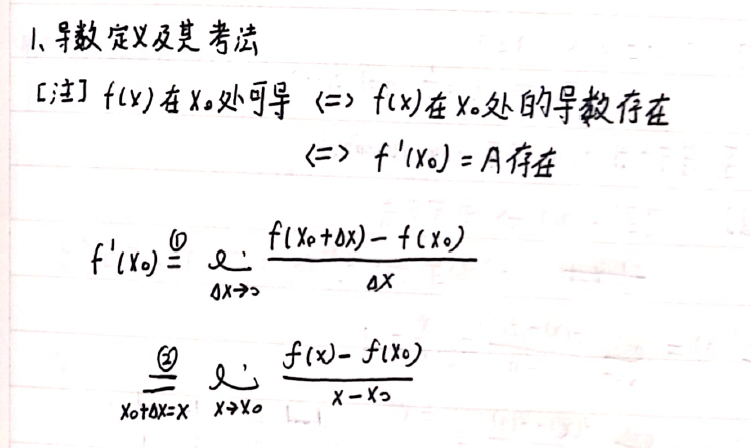 1、导数定义及其考法
[注] f(x)在x₀处可导 <=> f(x)在x₀处的导数存在
<=> f'(x₀)=A存在
f'(x₀) ①= lim_{Δx→0} (f(x₀+Δx)-f(x₀))/Δx
②=_{x₀+Δx=x} lim_{x→x₀} (f(x)-f(x₀))/(x-x₀)